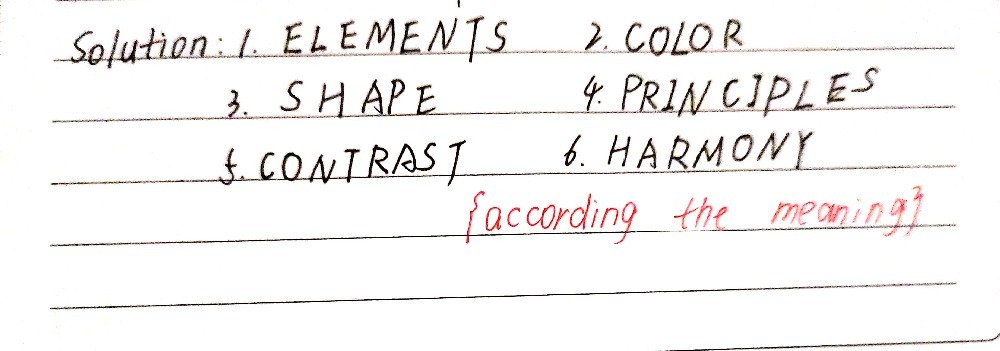 Solution: 1. ELEMENTS 2. COLOR
3. SHAPE 4. PRINCIPLES
5. CONTRAST 6. HARMONY
{according the meaning}